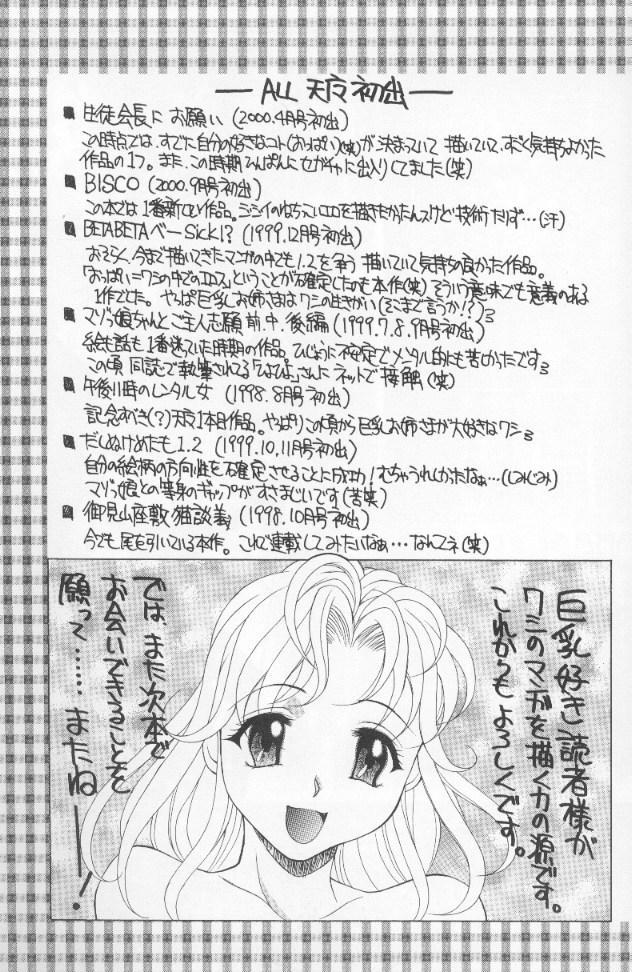 — ALL 天玄 初出 —
■ 生徒会長に お願い (2000.4月号初出)
この時点では、すでに自分の好きなコト(おっぱい)(笑)が 決まっていて 描いていて、すごく気持ちよかった
作品の1つ。また、この時期 ひんぱんに セガチャに出入りしてました(笑)
■ BISCO (2000.9月号初出)
この本では 1番新しい作品。
エロを描きたかったんスけど 技術たりず…(汗)
■ BETABETAベー Sick!? (1999.12月号初出)
おそらく、今まで描いてきたマンガの中でも 1.2を争う 描いていて気持ちの良かった作品。
「おっぱい=ワシの中でのエロス」ということが確定したのも本作(笑) そういう意味でも意義のある
1作でした。やっぱ巨乳お姉さまは ワシの生きがい (そこまで言うか!?)
■ マゾっ娘ちゃんとご主人志願 前.中.後編 (1999.7.8.9月号初出)
絵も話も 1番迷っていた時期の作品。ひじょうに不安定でメンタル的にも苦しかったです
この頃 同誌で執筆される さんに ネットで 接触 (笑)
■ 午後11時のレンタル女 (1998.8月号初出)
記念すべき(?)天玄1本目作品。やっぱりこの頃から 巨乳お姉さまが大好きなワシ
■ だしぬけめたも 1.2 (1999.10.11月号初出)
自分の絵柄の方向性を確定させることに成功! むちゃうれしかたなぁ…(しみじみ)
マゾっ娘との等身のギャップがすさまじいです(苦笑)
■ 御見山座敷猫談義 (1998.10月号初出)
今でも 尾を引いている本作。これで連載してみたいなぁ…なんてネ(笑)
巨乳好き読者様が
ワシのマンガを描く力の源です。
これからも よろしくです。
では、また次本で
お会いできることを
願って…… またねーー!